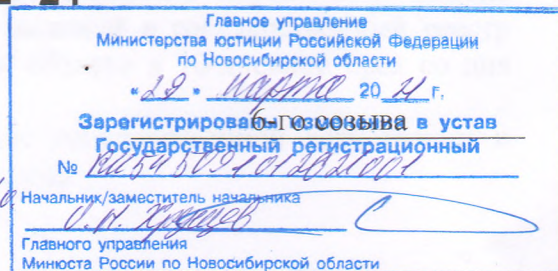 Главное управление
Министерства юстиции Российской Федерации
по Новосибирской области
«29» марта 2021 г.
6-го созыва
Зарегистрированы изменения в устав
Государственный регистрационный
№ RU545091012021001
Начальник/заместитель начальника
Главного управления
Минюста России по Новосибирской области